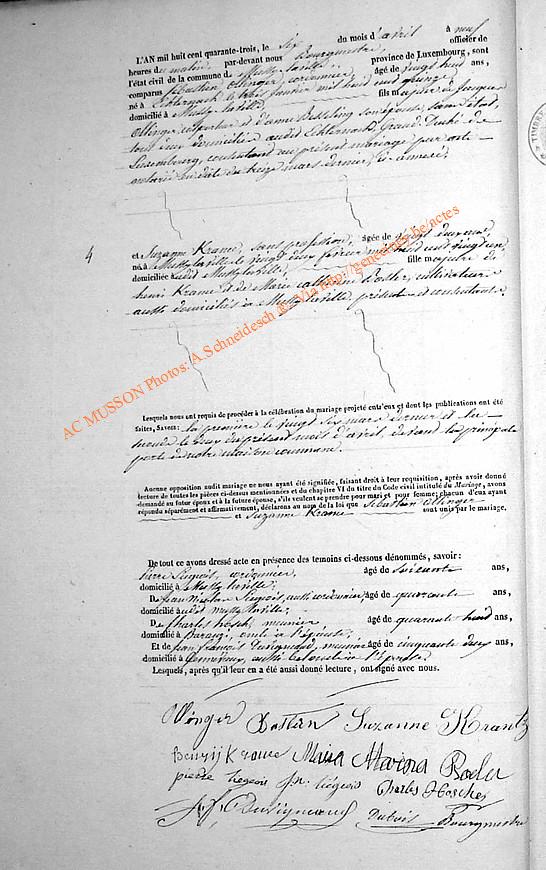 L'AN mil huit cent quarante-trois, le six du mois d'avril à neuf
heures du matin, par-devant nous Bourgmestre, officier de
l'état civil de la commune de Mussy la ville, province de Luxembourg, sont
comparus Sébastien Ollinger, cordonnier, âgé de vingt huit ans,
né à Echternach le trois janvier mil huit cent quinze,
domicilié à Mussy la ville, fils majeur de Jacques
Ollinger et d'anne Bessling son épouse, sans état,
tout deux domiciliés audit Echternach, Grand Duché de
Luxembourg, consentant au présent mariage par acte
notarié en date du treize mars dernier, ci annexé;
4
et Suzanne Krame, sans profession, âgée de vingt deux ans,
née à Mussy la ville le vingt deux février mil huit cent vingt un
domiciliée audit Mussy la ville, fille majeure de
henri Krame et de Marie Catherine, cultivateurs
aussi domiciliés à Mussy la ville, présents et consentants.
AC MUSSON Photos: A.Schneidesch Via http://geneadec.be/actes
Lesquels nous ont requis de procéder à la célébration du mariage projeté entr'eux et dont les publications ont été
faites, SAVOIR: la première le vingt six mars dernier et la
seconde le deux du présent mois d'avril, devant la principale
porte de notre maison commune.
Aucune opposition audit mariage ne nous ayant été signifiée, faisant droit à leur requisition, après avoir donné
lecture de toutes les pièces ci-dessus mentionnées et du chapitre VI du titre du Code civil intitulé du Mariage, avons
demandé au futur époux et à la future épouse, s'ils veulent se prendre pour mari et pour femme; chacun d'eux ayant
répondu séparément et affirmativement, déclarons au nom de la loi que Sébastien Ollinger
et Suzanne Krame sont unis par le mariage.
De tout ce avons dressé acte en présence des temoins ci-dessous dénommés, savoir:
Pierre Liégeois, cordonnier, âgé de soixante ans,
domicilié à Mussy la ville;
De Jean Nicolas Liégeois, aussi cordonnier, âgé de quarante ans,
domicilié audit mussy la ville;
De Charles hosch, meunier âgé de quarante huit ans,
domicilié à Baranzi,
Et de Jean françois Duvigneaud, meunier âgé de cinquante deux ans,
domicilié à Gomeroux,
Lesquels, après qu'il leur en a été aussi donné lecture, ont signé avec nous.
Ollinger Bastian Suzanne Krantz
Henrij Krame Maria Bodler
pierre liegeois J.N. liégeois Charles Hosches
J.F. Duvigneaud Dubois Bourgmestre
TIMBRE